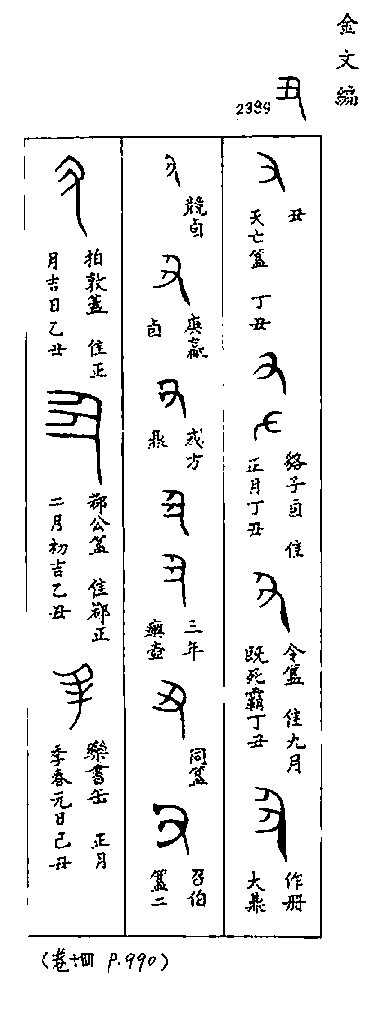 金文編
丑
2399
丑
天亡簋 丁丑
貉子卣 隹
正月丁丑
令簋 隹九月
既死霸丁丑
作冊
大鼎
競卣
庚嬴
卣
㦰方
鼎
三年
𤼈壺
同簋
召伯
簋二
拍敦蓋 隹正
月吉日乙丑
鄀公簋 隹鄀正
二月初吉乙丑
欒書缶 正月
季春元日己丑
(卷十四 P.990)